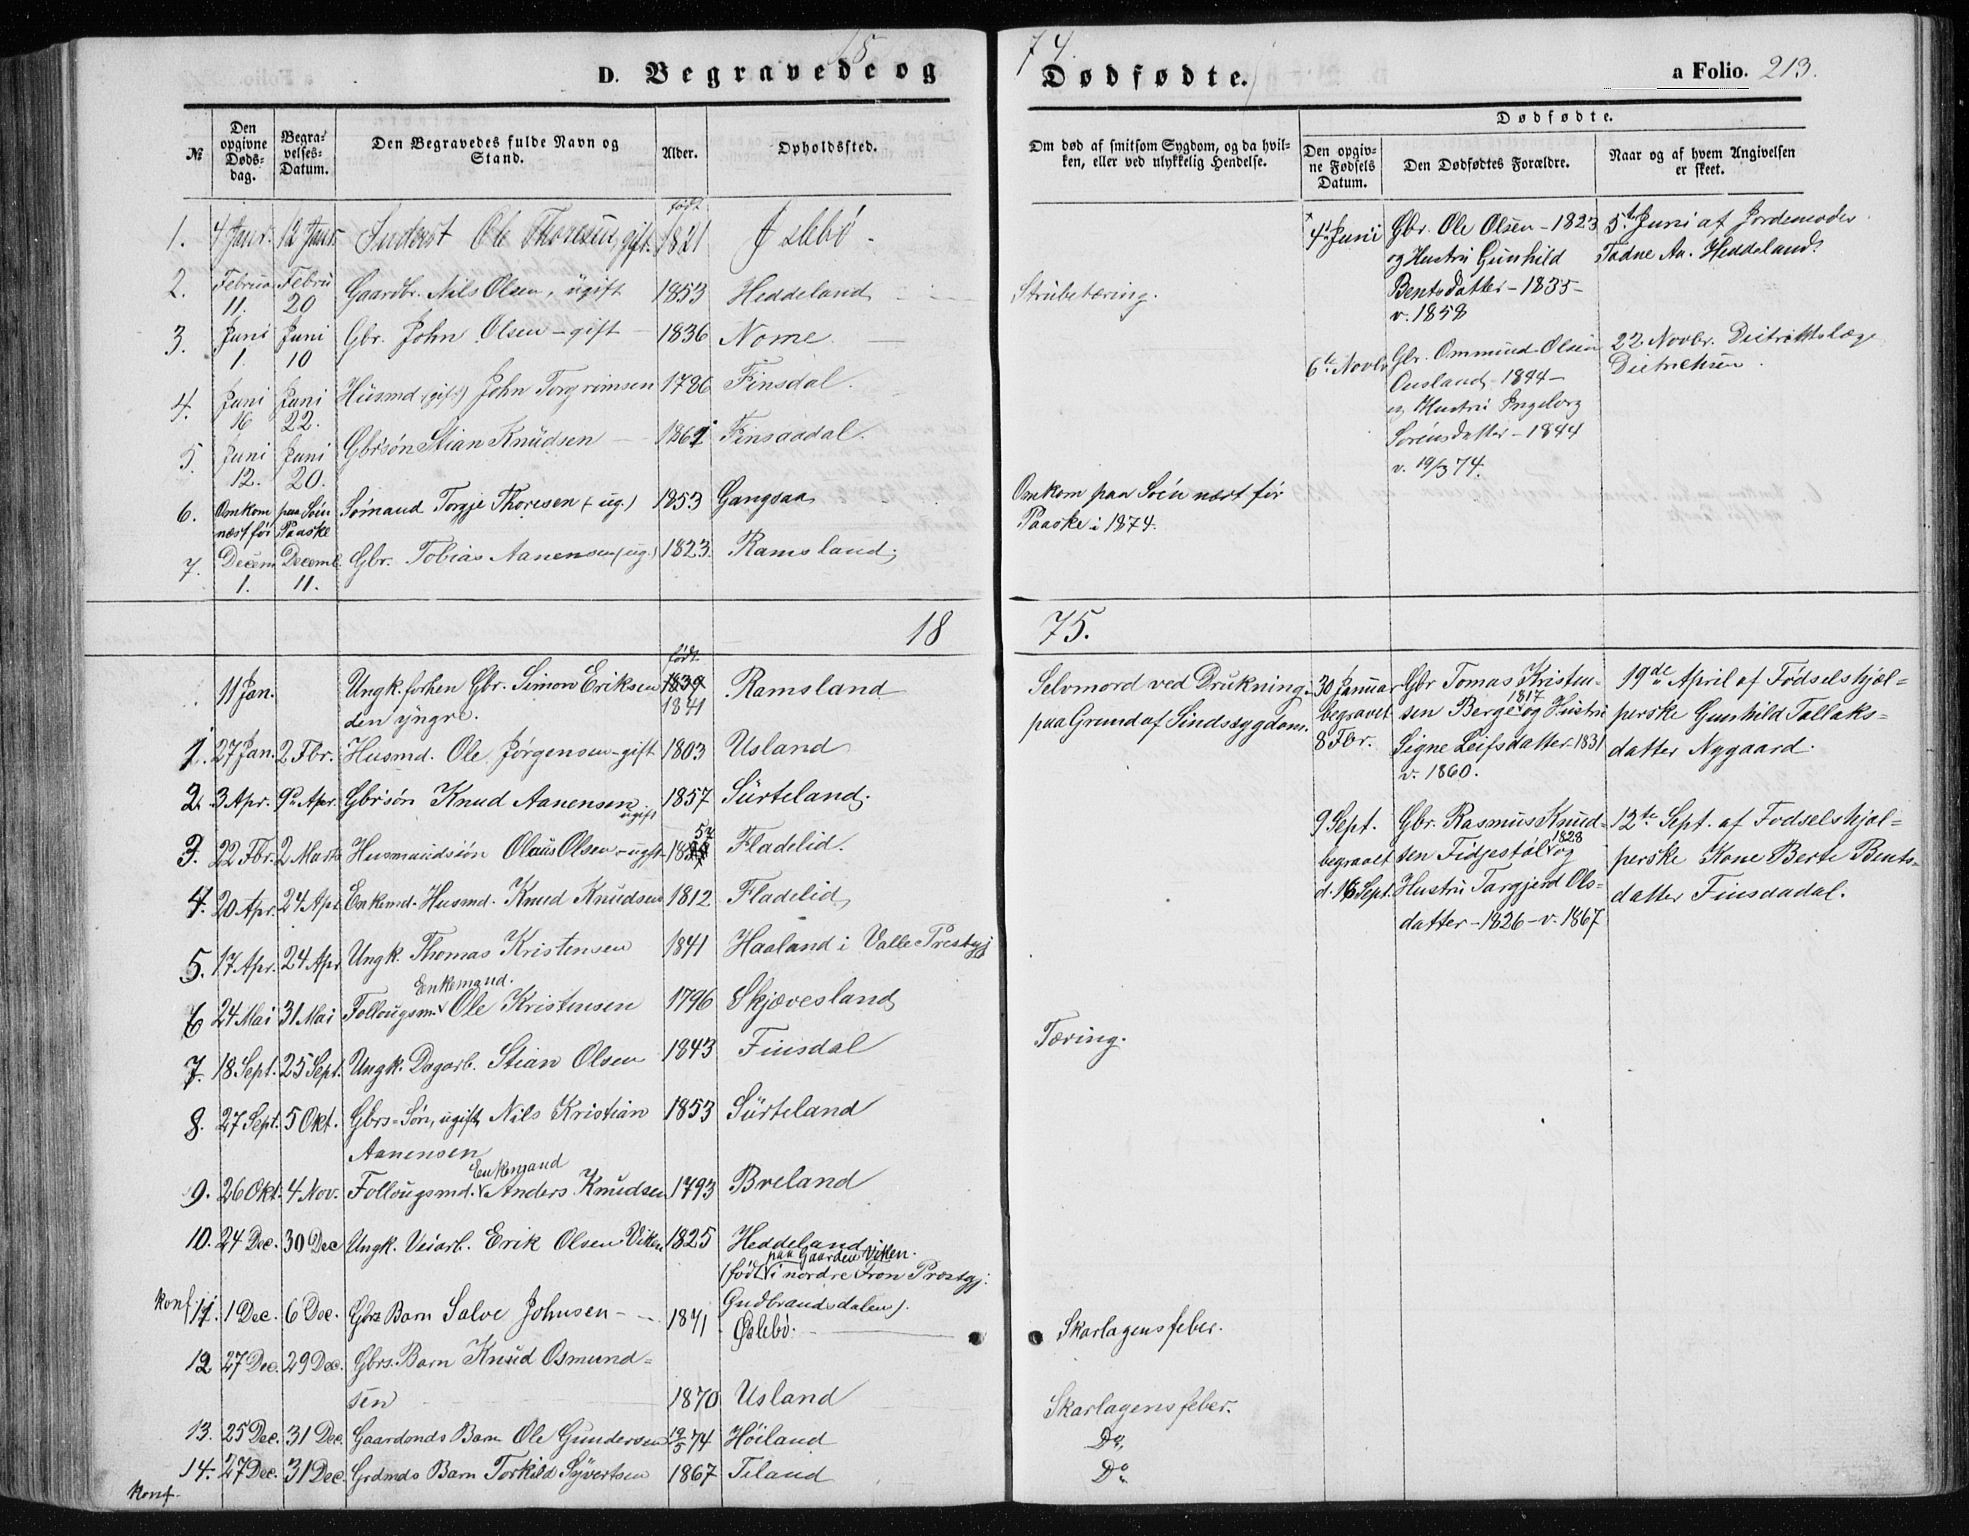 18 74.
D. Begravede og Dødfødte.
a Folio. 213.
№
Den opgivne Døds-dag.
Begra-velses-Datum.
Den Begravedes fulde Navn og Stand.
Alder.
Opholdssted.
Om død af smitsom Sygdom, og da hvil-ken, eller ved ulykkelig Hendelse.
Dødfødte.
Den opgiv-ne Fødsels Datum.
Den Dødfødtes Forældre.
Naar og af hvem Angivelsen er skeet.
født
1. 4 Janr. 12 Janr. Inderst Ole Thoresen, gift. 1821
2. Februa 11. Febru 20 Gaardbr. Nils Olsen, ugift 1853 Heddeland Strubetæring.
3. Juni 1. Juni 10 Gbr. John Olsen - gift 1836 Nome
4. Juni 16 Juni 22. Husmd (gift) John Torgrimsen 1786 Finsdal.
5. Juni 12. Juni 20. Gbrsøn Stian Knudsen 1861 Finsaadal.
6. Omkom paa Søen næst før Paaske Sømand Torgje Thoresen (ug.) 1853 Gangsaa Omkom paa Søen næst før
Paaske i 1874.
7. Decem 1. Deceml. 11. Gbr. Tobias Aanensen (ug.) 1823. Ramsland
4de Juni Gbr. Ole Olsen - 1823
og Hustru Gunhild
Bentsdatter - 1835 -
v. 1858
5te Juni af Jordemoder
Tadne Aa. Heddeland.
6te Novbr Gbr. Ommund Olsen
Ousland - 1844 -
og Hustru Ingeborg
Sørensdatter - 1844
v. 19/3 74.
22 Novbr. Distriktslæge
Dietrichsen.
18 75.
født
11 Jan. Ungk. forhen Gbr. Simon Eriksen 1839 Ramsland
den yngre. 1841
Selvmord ved Drukning
paa Grund af Sindssygdom.
1. 27 Jan. 2 Fbr. Husmd. Ole Jørgensen - gift 1803 Usland
2. 3 Apr. 9 Apr. Gbrsøn Knud Aanensen ugift 1857 Sürteland.
3. 22 Fbr. 2 Marts Husmandssøn Olaus Olsen - ugift 18 Fladelid.
4. 20 Apr. 24 Apr. Enkemd. Husmd. Knud Knudsen 1812 Fladelid
5. 17 Apr. 24 Apr. Ungk. Thomas Kristensen 1841 Haaland i Valle Prestgj
6 24 Mai 31 Mai Follougsm. Enkemand. Ole Kristensen 1796 Skjævesland
7. 18 Sept. 25 Sept. Ungk. Dagarb. Stian Olsen 1843 Finsdal Tæring.
8. 27 Sept. 5 Okt. Gbrs=Søn, ugift, Nils Kristian 1853 Sürteland
Aanensen
9. 26 Okt. 4 Nov. Follougsmd. Enkemand Anders Knudsen 1793 Breland
10. 24 Dec. 30 Dec Ungk. Veiarb. Erik Olsen Viken 1825 Heddeland
(født paa Gaarden Viken. i nordre Fron Præstgj.
Gudbrandsdalen).
konf. 11. 1 Dec. 6 Dec. Gbrs Barn Salve Johnsen - 1871 Øslebø. Skarlagensfeber.
12 27 Dec. 29 Dec. Gbrs. Barn Knud Osmund=
sen 1870 Usland Skarlagensfeber.
13. 25 Dec. 31 Dec. Gaardmds Barn Ole Gundersen 19/5 74 Høiland Do.
14. 27 Dec. 31 Dec. Grdmds Barn Torkild Syvertsen 1867 Tiland Do
konf.
30 Januar begravet 8 Fbr. Gbr Tomas Kristen-
sen Berge 1817 og Hustru
Signe Leifsdatter 1831
v. 1860.
19de April af Fødselshjæl=
perske Gunhild Tallaks=
datter Nygaard.
9 Sept. begravet d. 16 Sept. Gbr. Rasmus Knud-
sen Fidjestøl 1828 og
Hustru Targjerd Ols-
datter - 1826 - v. 1867
12te Sept. af Fødselshjæl=
perske Kone Berte Bents=
datter Finsdadal.